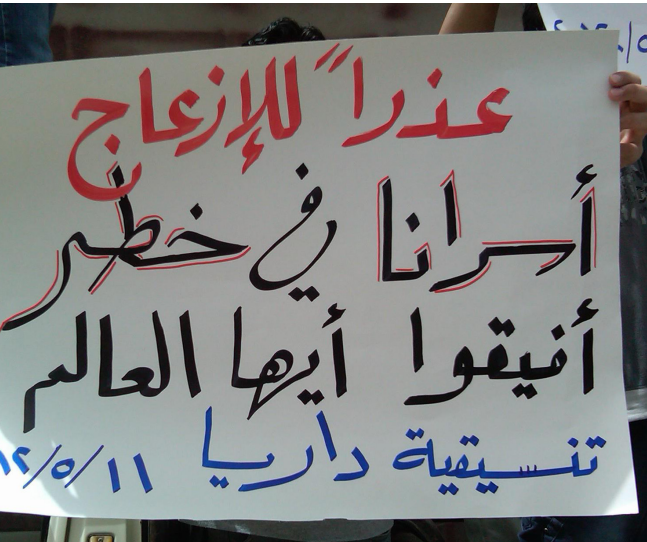 عذراً للإزعاج
أسرانا في خطر
أفيقوا أيها العالم
تنسيقية داريا ١١/٥/١٢